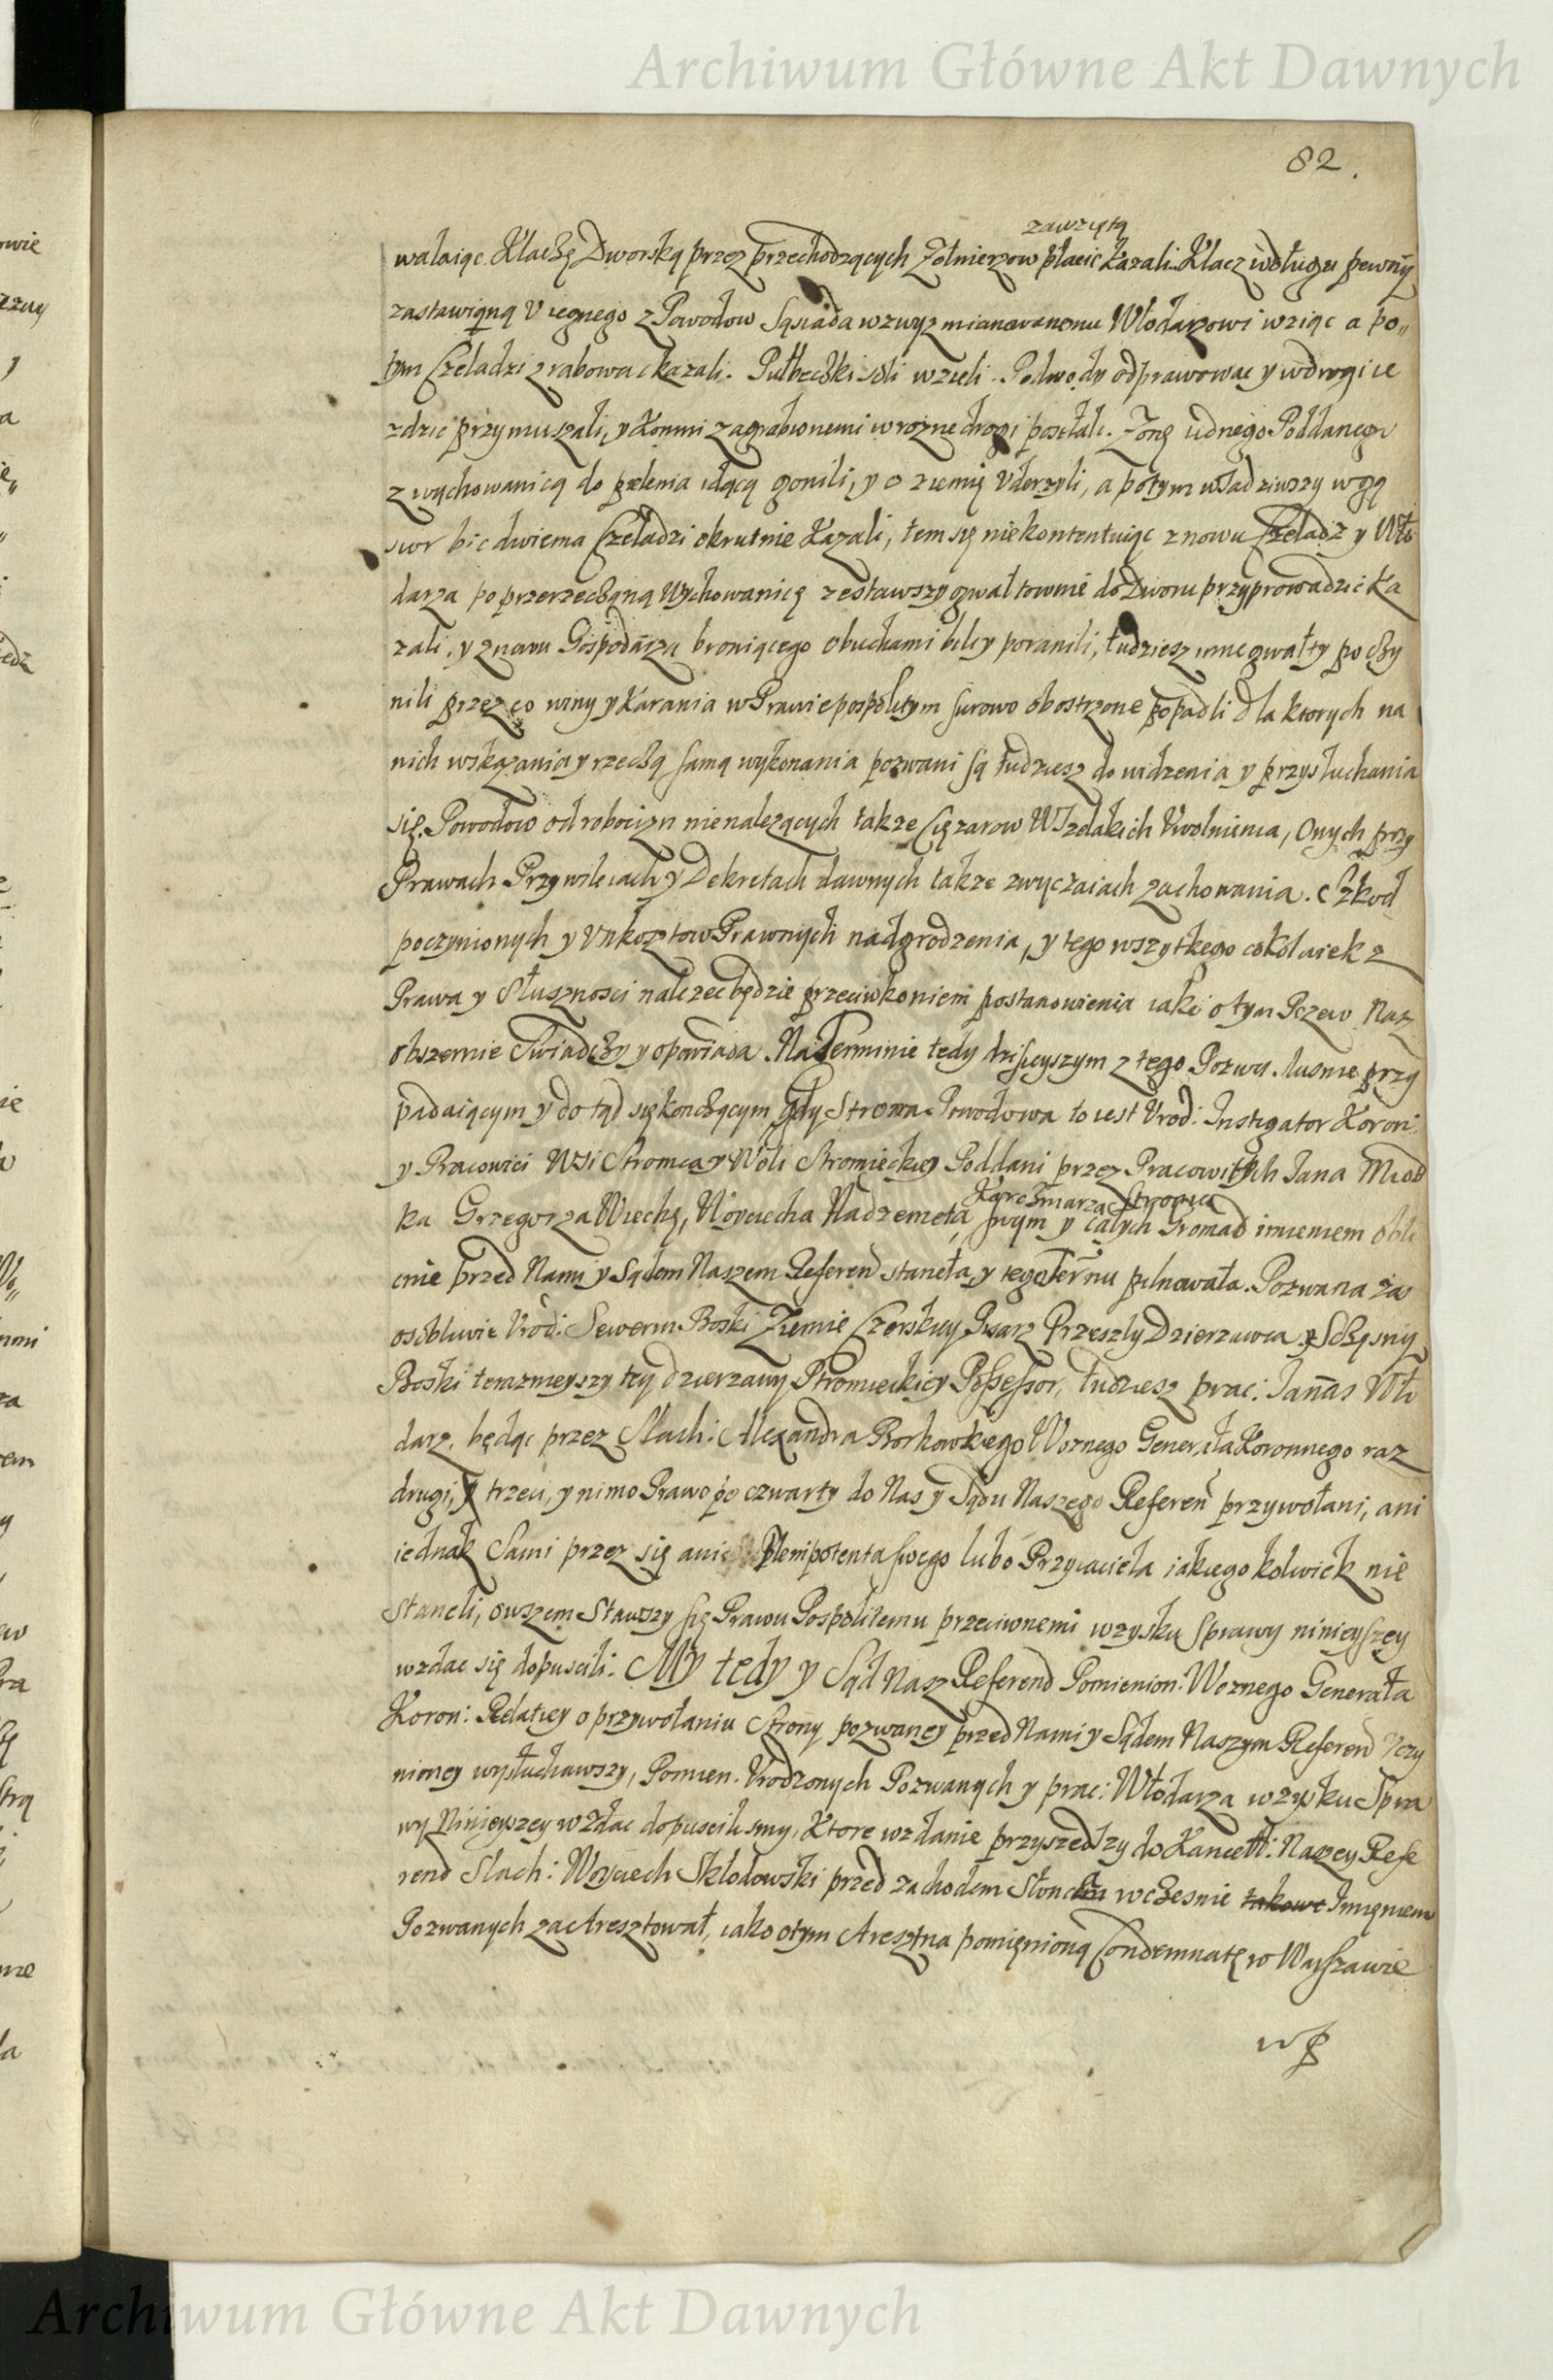 Archiwum Główne Akt Dawnych
82.
zawziętą
walaiąc. Klaczę Dworską przez przechodzących Zołnierzow płacic kazali. Klacz w długu pewny
zastawioną V iegnego z Powodow Sąsiada wzwyz mianowanemu Włodarzowi wziąc a po„
tym Czeladzi zrabowac kazali. Pułbeczki soli wzieli. Podwody odprawowac y w drogi ie
zdzic przymuszali, y konmi zagrabionemi w rozne drogi posełali. Zonę iednego Poddanego
z wychowanicą do pielenia idącą gonili, y o ziemię Vderzyli, a potym wsadziwszy w gą
sior bic dwiema Czeladzi okrutnie kazali, tem się niekontentuiąc znowu Czeladz y Wło
darza po przerzeczoną Wychowanicę zesławszy gwałtownie do Dworu przyprowadzic ka
zali, y znowu Gospodarza broniącego obuchami bili y poranili, tudziesz inne gwałty poczy
nili przez co winy y karania w Prawie pospolitym surowo obostrzone popadli dla ktorych na
nich wskazania y rzeczą samą wykonania pozwani są tudziesz do widzenia y przysłuchania
się. Powodow od robocizn nienalezących takze Cięzarow Wszelakich Vwolnienia, Onych przy
Prawach Przywileiach y Dekretach dawnych takze zwyczaiach zachowania. Szkod
poczynionych y Vnkosztow Prawnych nadgrodzenia, y tego wszytkego cokolwiek z
Prawa y Słusznosci nalezec będzie przeciwko niem postanowienia iako o tym Pozew Nasz
obszernie Swiadczy y opowiada. Na Terminie tedy dzisieyszym z tego Pozwu słusnie przy
padaiącym y do tąd się konczącym gdy Strona Powodowa to iest Vrod: Instigator Koron:
y Pracowici Wsi Stromca y Woli Stromieckiey Poddani przez Pracowitych Jana Miod
Karczmarza Stromca
ka Grzegorza Wiechę, Woyciecha Nadzemeta, swym y całych Gromad imieniem obli
cnie przed Nami y Sądem Naszem Referend staneła y tego Ternu pilnowała. Pozwana zas
osobliwie Vrod: Seweryn Boski Ziemie Czerskiey Pisarz Przeszły Dzierzawca y Sczęsny
Boski terazneyszy tey dzierzawy Stromieckiey Possessor, tudziesz prac: Jannas Wło
darz, będąc przez Slach: Alexandra Borkowskiego Woznego Generała Koronnego raz
drugi, y trzeci, y nimo Prawo po czwarty do Nas y Sądu Naszego Referen przywołani, ani
iednak Sami przez się ani Plenipotenta swego lubo Przyiaciela iakiego kolwiek nie
staneli, owszem Stawszy się Prawu Pospolitemu przeciwnemi w zysku Sprawy ninieyszey
wzdac się dopuscili. My tedy y Sąd Nasz Referend Pomienion: Woznego Generała
Koron: Relatiey o przywołaniu Strony pozwaney przed Nami y Sądem Naszym Referend Vczy
nioney wysłuchawszy, Pomien. Vrodzonych Pozwanych y prac: Włodarza w zysku Spra
wy Ninieyszey wzdac dopuscilismy, Ktore wzdanie przyszedszy do Kancell: Naszey Refe
rend Slach: Woyciech Skłodowski przed zachodem Słonca wczesnie takowe Imieniem
Pozwanych zaaresztował, iako o tym Areszt na pomienioną Condemnatę w Warszawie
w p
Archiwum Główne Akt Dawnych